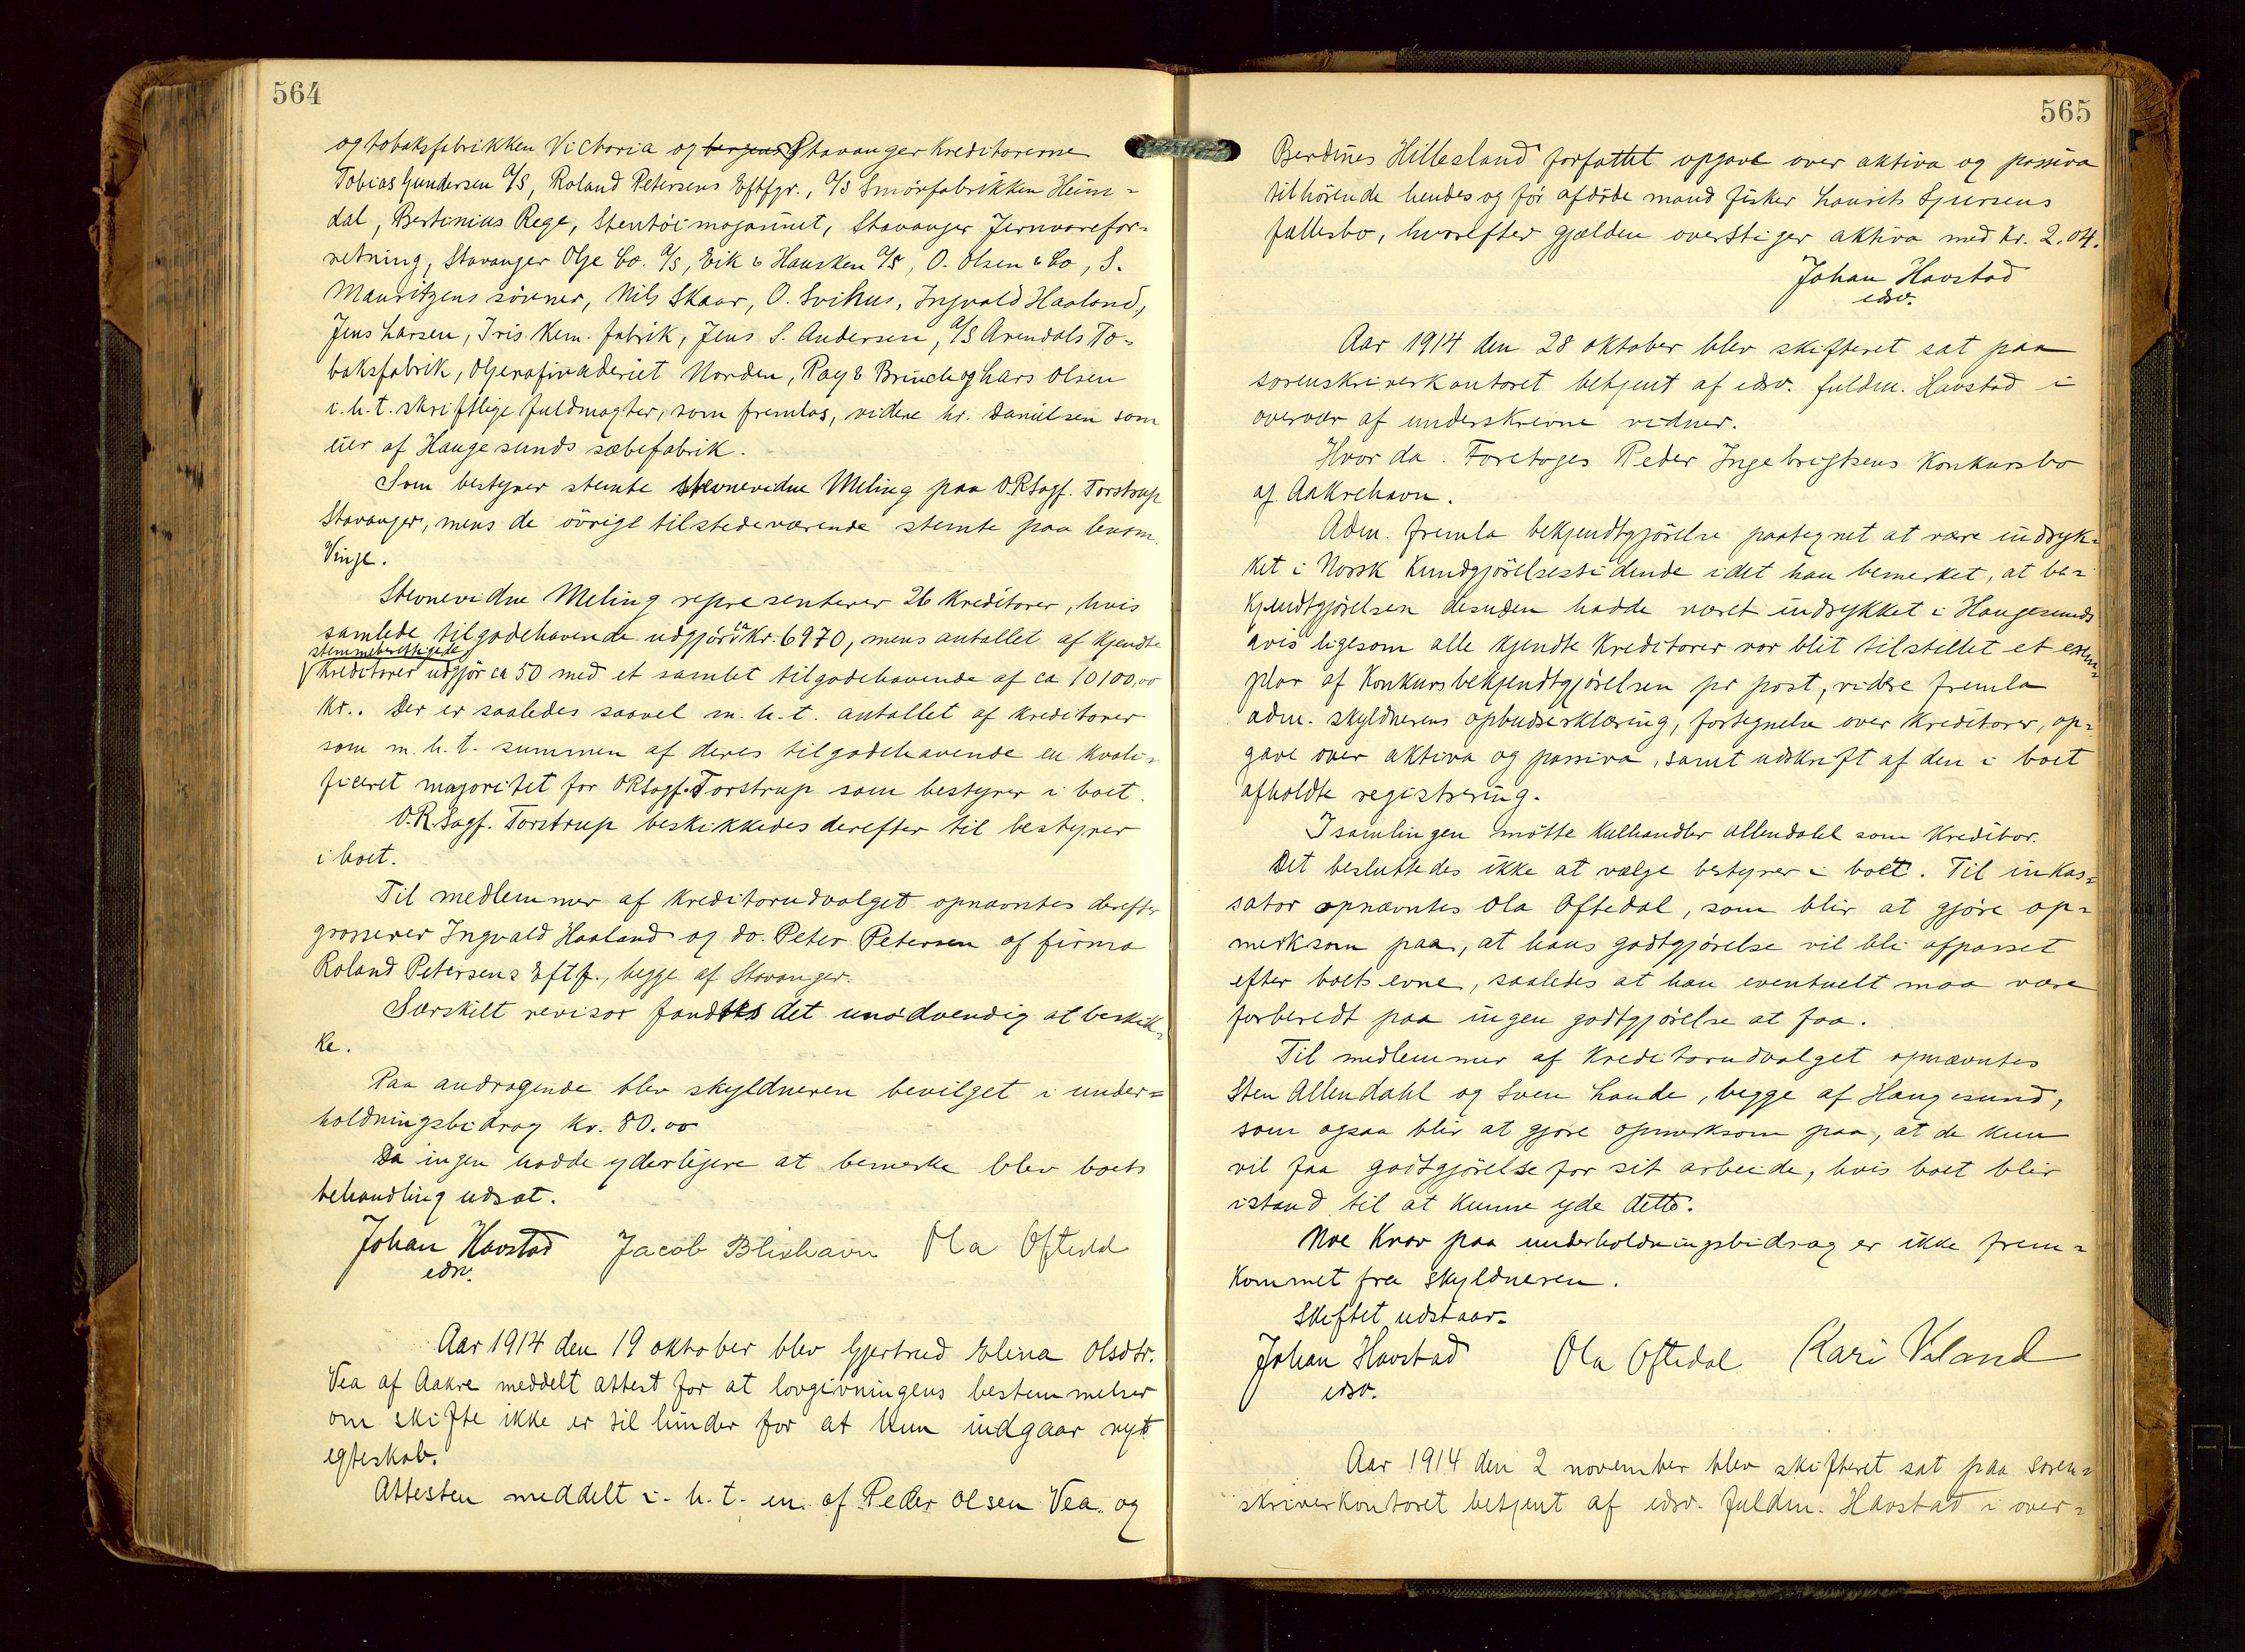 564
og tobaksfabrikken Victoria og bergens Stavanger kreditorerne
Tobias Gundersen A/S, Roland Petersens Eftfgr., A/S Smörfabrikken Heim=
dal, Bertinius Rege, Stentöimagasinet, Stavanger Jernvarefor-
retning, Stavanger Olje Co. A/S, Eik & Hausken A/S, O. Olsen & Co, S.
Mauritzens sönner, Nils Skaar, O. Svihus, Ingvald Haaland,
Jens Larsen, Iris kem. fabrik, Jens S. Andersen, A/S Arendals To-
baksfabrik, Oljerafinaderiet Norden, Ray & Bruch og Lars Olsen
i.h.t. skriftlige fuldmagter, som fremlas, videre hr. Danielsen som
eier af Haugesunds sæbefabrik.
Som bestyrer stemte stevnevidne Meling paa O.R.Sagf. Torstrup
Stavanger, mens de övrige tilstedeværende stemte paa lensm.
Vinje.
Stevnevidne Meling representerer 26 kreditorer, hvis
samlede tilgodehavende udgjör ca kr. 6970, mens antallet af kjendte
stemmeberettigede
kreditorer udgjör ca 50 med et samlet tilgodehavende af ca 10100,00
kr.. Der er saaledes saavel m.h.t. antallet af kreditorer
som m.h.t. summen af deres tilgodehavende en kvali-
ficeret majoritet for ORSagf. Torstrup som bestyrer i boet.
O.R.Sagf. Torstrup beskikkedes derefter til bestyrer
i boet.
Til medlemmer af kreditorudvalget opnævntes derefter
grosserer Ingvald Haaland og do. Peter Petersen af firma
Roland Petersens Eftf., begge af Stavanger.
Særskilt revisor fandtes det unödvendig at beskik-
ke.
Paa andragende blev skyldneren bevilget i under=
holdningsbidrag kr. 80.00
Da ingen hadde yderligere at bemerke blev boets
behandling udsat.
Johan Havstad Jacob Blikshavn Ola Oftedal
edsv.
Aar 1914 den 19 oktober blev Gjertrud Elina Olsdtr.
Vea af Aakre meddelt attest for at lovgivningens bestemmelser
om skifte ikke er til hinder for at hun indgaar nyt
egteskab.
Attesten meddelt i.h.t. en af Peder Olsen Vea og
565
Berdines Hillesland forfattet opgave over aktiva og passiva
tilhörende hendes og för afdöde mand fisker Laurits Sjursens
fællesbo, hvorefter gjælden overstiger aktiva med kr. 2,04.
Johan Havstad
edsv.
Aar 1914 den 28 oktober blev skifteret sat paa
sorenskriverkontoret betjent af edsv. fuldm. Havstad i
overvær af underskrevne vidner.
Hvor da. Foretoges Peder Ingebrigtsens konkursbo
af Aakrehavn.
Adm. fremla bekjendtgjörelse paategnet at være indryk=
ket i Norsk Kundgjörelsestidende idet han bemerket, at be=
kjendtgjörelsen desuden hadde været indrykket i Haugesunds
avis ligesom alle kjendte kreditorer var blit tilstillet et exem=
plar af konkursbekjendtgjörelsen pr post, videre fremla
adm. skyldnerens opbudserklæring, fortegnelse over kreditorer, op=
gave over aktiva og passiva, samt udskrift af den i boet
afholdte registrering.
I samlingen mötte kulhandler Allendahl som kreditor.
Det besluttedes ikke at vælge bestyrer i boet. Til inkas=
sator opnævntes Ola Oftedal, som blir at gjöre op=
merksom paa, at hans godtgjörelse vil bli afpasset
efter boets evne, saaledes at han eventuelt maa være
forberedt paa ingen godtgjörelse at faa.
Til medlemmer af kreditorudvalget opnævntes
Sten Allendahl og Sven Lande, begge af Haugesund,
som ogsaa blir at gjøre opmerksom paa, at de kun
vil faa godtgjörelse for sit arbeide, hvis boet blir
istand til at kunne yde dette.
Noe krav paa underholdningsbidrag er ikke frem=
kommet fra skyldneren.
Skiftet udstaar.
Johan Havstad Ola Oftedal Kari Væland
edsv.
Aar 1914 den 2 november blev skifteret sat paa soren=
skriverkontoret betjent af edsv. fuldm. Havstad i over=